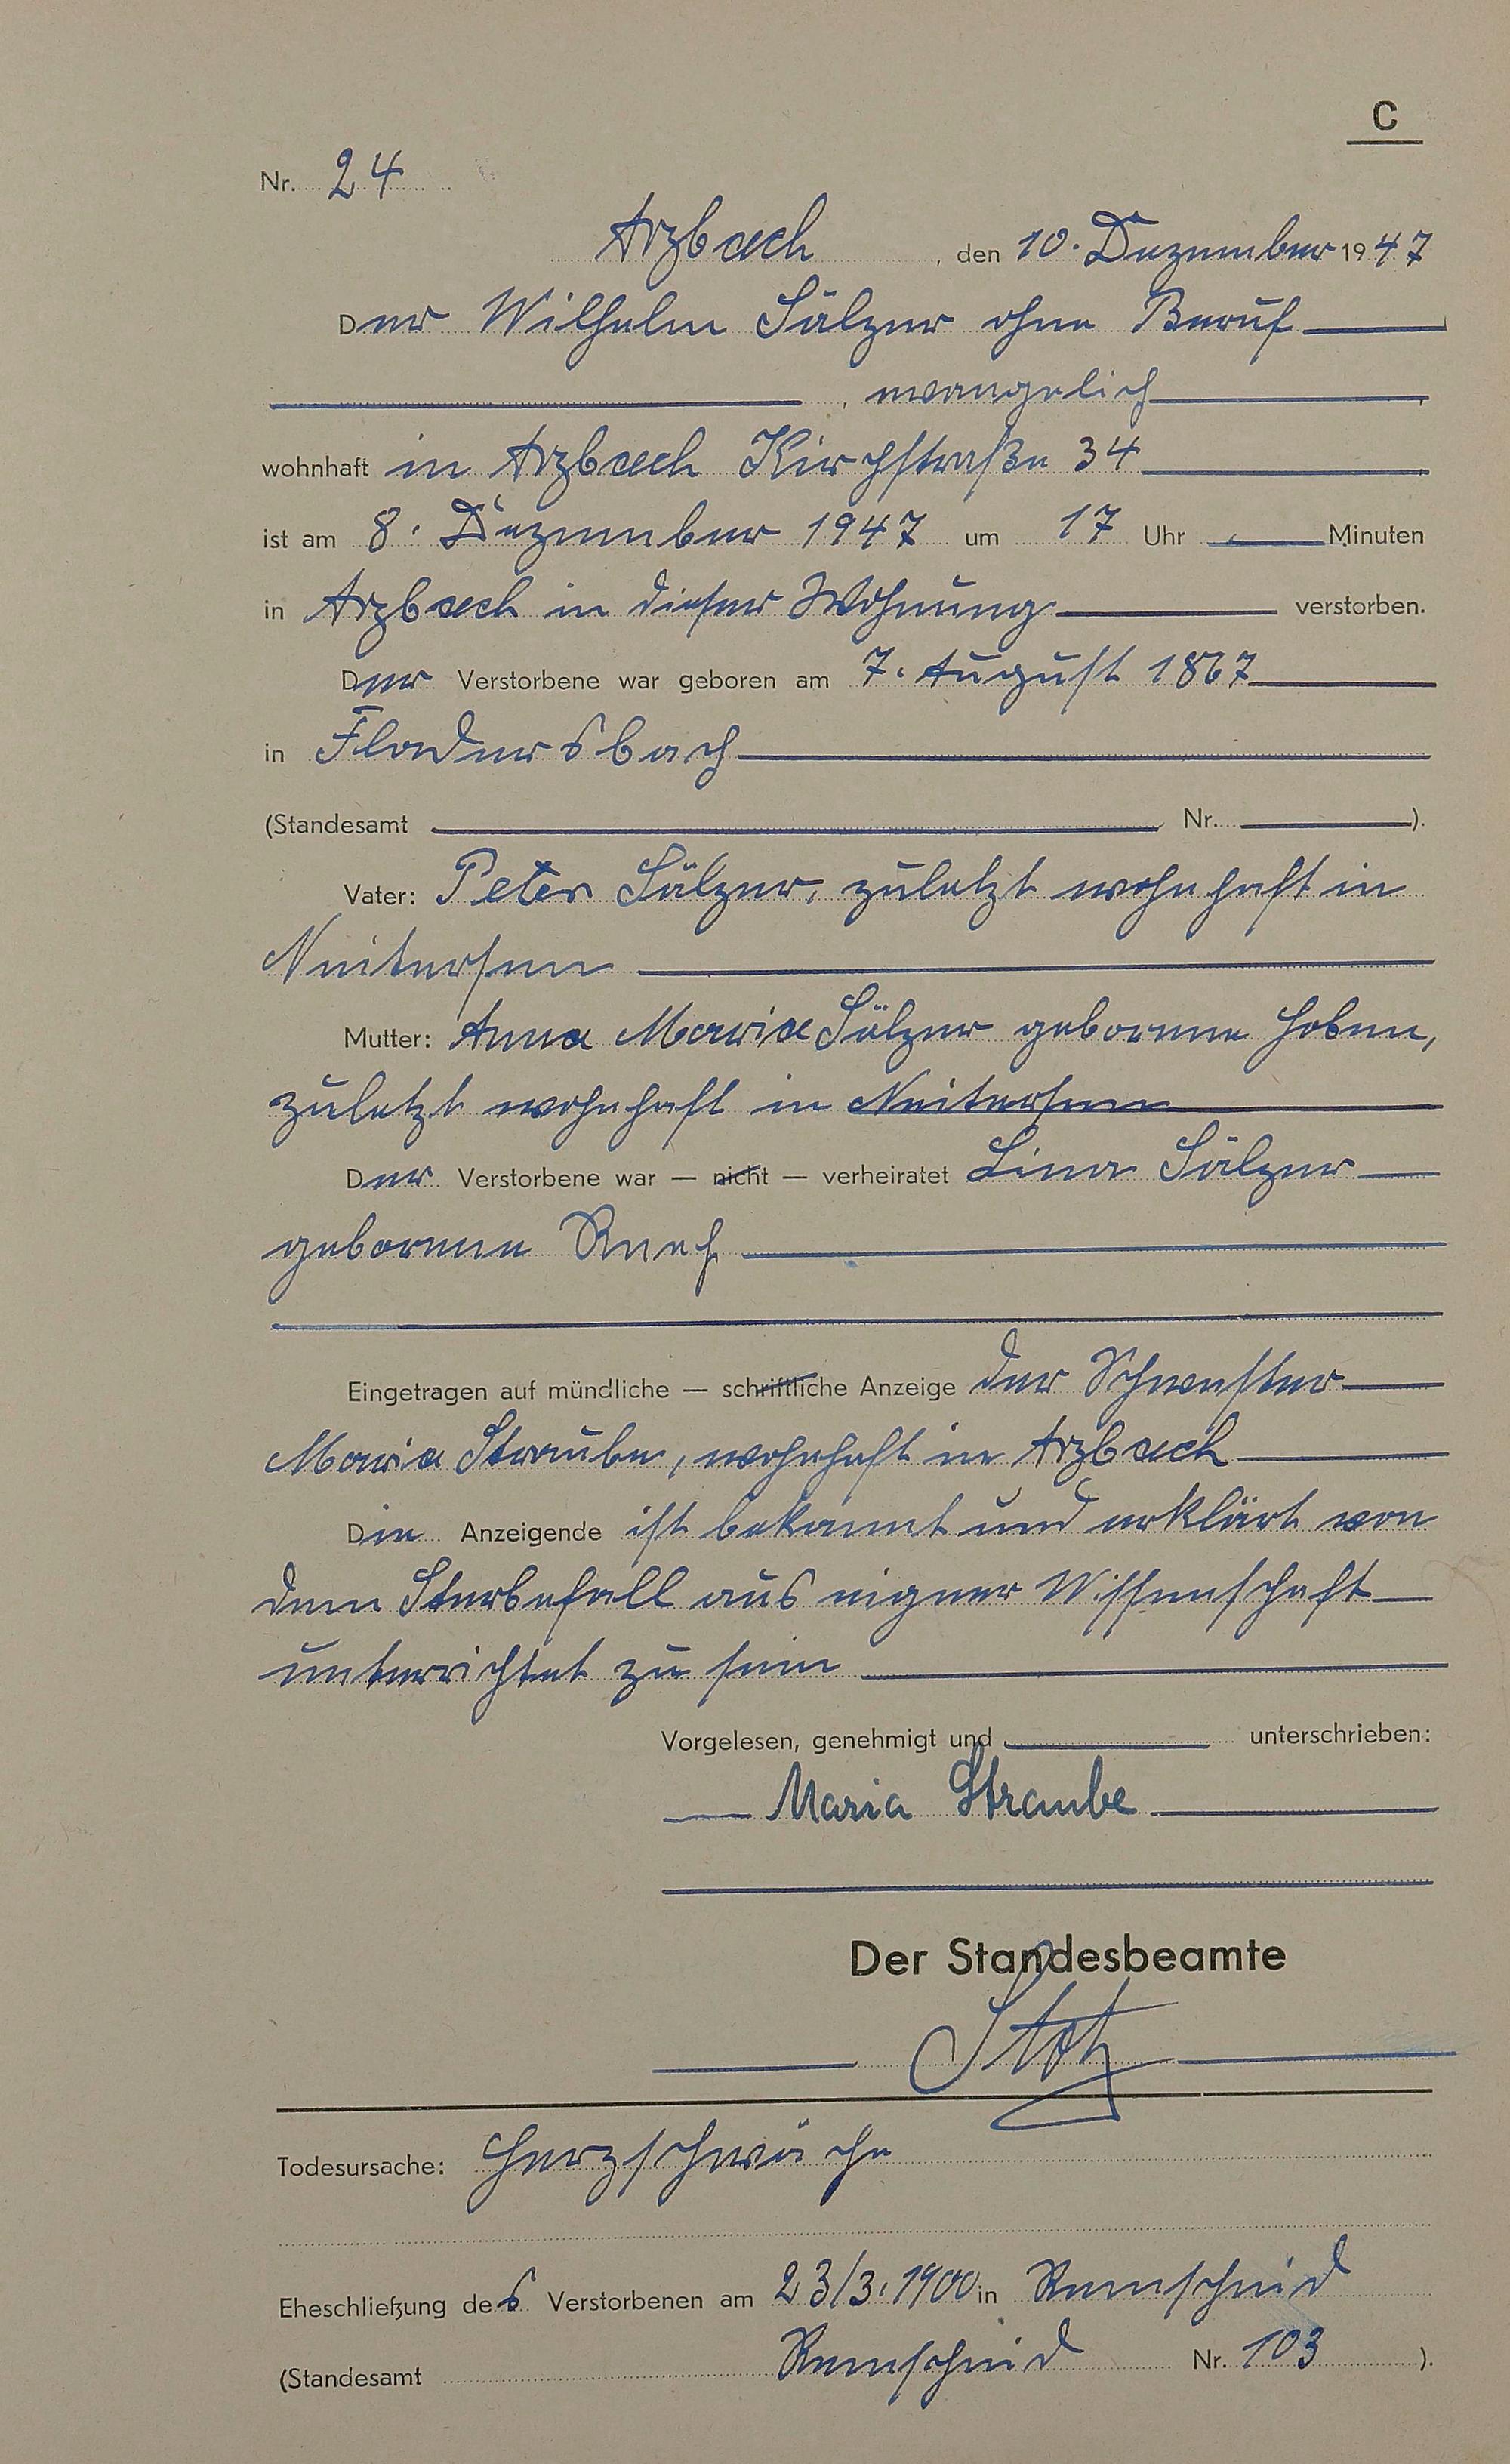 C
Nr. 24
Arzbach, den 10. Dezember 1947
Der Wilhelm Sälzer ohne Beruf
, evangelich
wohnhaft in Arzbach Kirchstraße 34
ist am 8. Dezember 1947 um 17 Uhr Minuten
in Arzbach in dieser Wohnung verstorben.
Der Verstorbene war geboren am 7. August 1867
in Fladersbach
(Standesamt Nr. ).
Vater: Peter Sälzer, zuletzt wohnhaft in
Neitersen
Mutter: Anna Maria Sälzer geborene Hoben,
zuletzt wohnhaft in Neitersen
Der Verstorbene war — nicht — verheiratet Lina Sälzer
geborene
Eingetragen auf mündliche — schriftliche Anzeige der Schwester
Maria Straube, wohnhaft in Arzbach
Die Anzeigende ist bekannt und erklärt von
dem Sterbefall aus eigner Wissenschaft
unterrichtet zu sein
Vorgelesen, genehmigt und unterschrieben:
Maria Straube
Der Standesbeamte
Stotz
Todesursache: Herzschwäche
Eheschließung des Verstorbenen am 23/3.1900 in Remscheid
(Standesamt Remscheid Nr. 103 ).